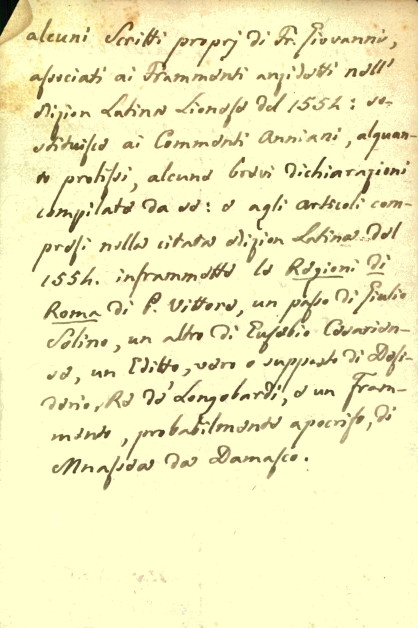 alcuni Scritti proprj di Fr. Giovanni,
associati ai Frammenti anzidetti nell'
edizion Latina Lionese del 1554: so-
stituisce ai Commenti Anniani, alquan-
to prolissi, alcune brevi dichiarazioni
compilate da se: e agli articoli com-
presi nella citata edizion Latina del
1554. inframmette le Regioni di
Roma di P. Vittore, un passo di Giulio
Solino, un altro di Eusebio Cesarien-
se, un Editto, vero o supposto di Desi-
derio, Re de' Longobardi, e un Fram-
mento, probabilmente apocrifo, di
Mnasea da Damasco.